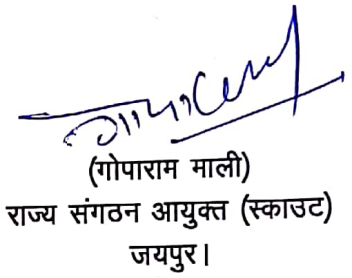 (गोपाराम माली)
राज्य संगठन आयुक्त (स्काउट)
जयपुर।